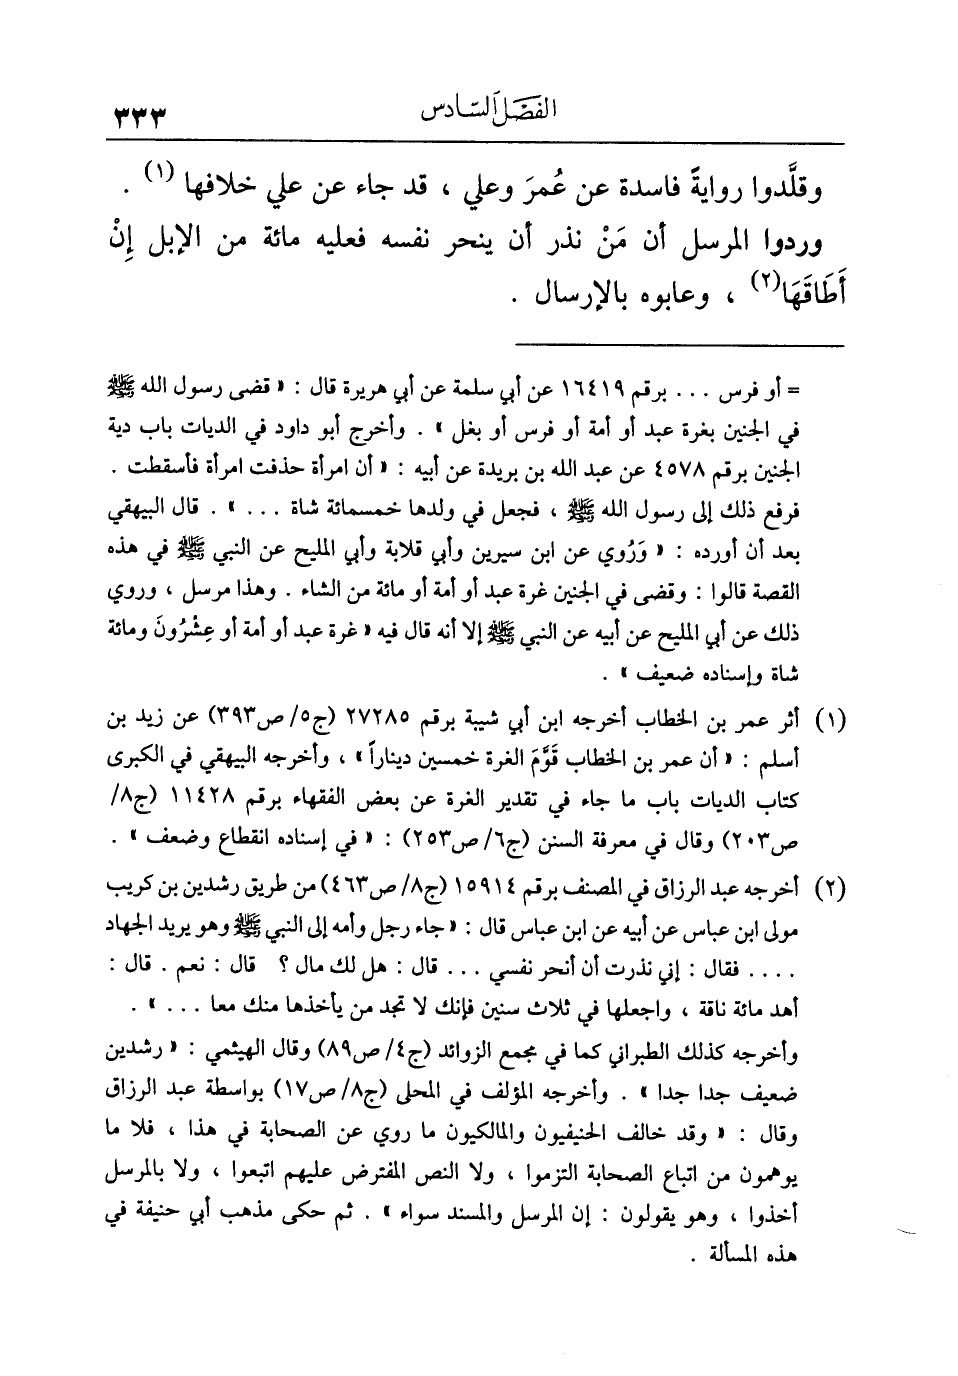 الفصل السادس
٣٣٣
وقلَّدوا روايةً فاسدة عن عُمرَ وعلي ، قد جاء عن علي خلافها (١) .
وردوا المرسل أن مَنْ نذر أن ينحر نفسه فعليه مائة من الإبل إِنْ
أَطَاقَهَا(٢) ، وعابوه بالإرسال .
= أو فرس ... برقم ١٦٤١٩ عن أبي سلمة عن أبي هريرة قال : « قضى رسول الله ﷺ
في الجنين بغرة عبد أو أمة أو فرس أو بغل » . وأخرج أبو داود في الديات باب دية
الجنين برقم ٤٥٧٨ عن عبد الله بن بريدة عن أبيه : « أن امرأة حذفت امرأة فأسقطت .
فرفع ذلك إلى رسول الله ﷺ ، فجعل في ولدها خمسمائة شاة ... » . قال البيهقي
بعد أن أورده : « وَرُوي عن ابن سيرين وأبي قلابة وأبي المليح عن النبي ﷺ في هذه
القصة قالوا : وقضى في الجنين غرة عبد أو أمة أو مائة من الشاء . وهذا مرسل ، وروي
ذلك عن أبي المليح عن أبيه عن النبي ﷺ إلا أنه قال فيه « غرة عبد أو أمة أو عِشْرُونَ ومائة
شاة وإسناده ضعيف » .
(١) أثر عمر بن الخطاب أخرجه ابن أبي شيبة برقم ٢٧٢٨٥ (ج٥/ ص٣٩٣) عن زيد بن
أسلم : « أن عمر بن الخطاب قَوَّمَ الغرة خمسين ديناراً » ، وأخرجه البيهقي في الكبرى
كتاب الديات باب ما جاء في تقدير الغرة عن بعض الفقهاء برقم ١١٤٢٨ (ج٨/
ص٢٠٣) وقال في معرفة السنن (ج٦/ ص٢٥٣) : « في إسناده انقطاع وضعف » .
(٢) أخرجه عبد الرزاق في المصنف برقم ١٥٩١٤ (ج٨/ ص٤٦٣) من طريق رشدين بن كريب
مولى ابن عباس عن أبيه عن ابن عباس قال : « جاء رجل وأمه إلى النبي ﷺ وهو يريد الجهاد
.... فقال : إني نذرت أن أنحر نفسي ... قال : هل لك مال ؟ قال : نعم . قال :
أهد مائة ناقة ، واجعلها في ثلاث سنين فإنك لا تجد من يأخذها منك معا ... » .
وأخرجه كذلك الطبراني كما في مجمع الزوائد (ج٤/ ص٨٩) وقال الهيثمي : « رشدين
ضعيف جدا جدا » . وأخرجه المؤلف في المحلى (ج٨/ ص١٧) بواسطة عبد الرزاق
وقال : « وقد خالف الحنيفيون والمالكيون ما روي عن الصحابة في هذا ، فلا ما
يوهمون من اتباع الصحابة التزموا ، ولا النص المفترض عليهم اتبعوا ، ولا بالمرسل
أخذوا ، وهو يقولون : إن المرسل والمسند سواء » . ثم حكى مذهب أبي حنيفة في
هذه المسألة .